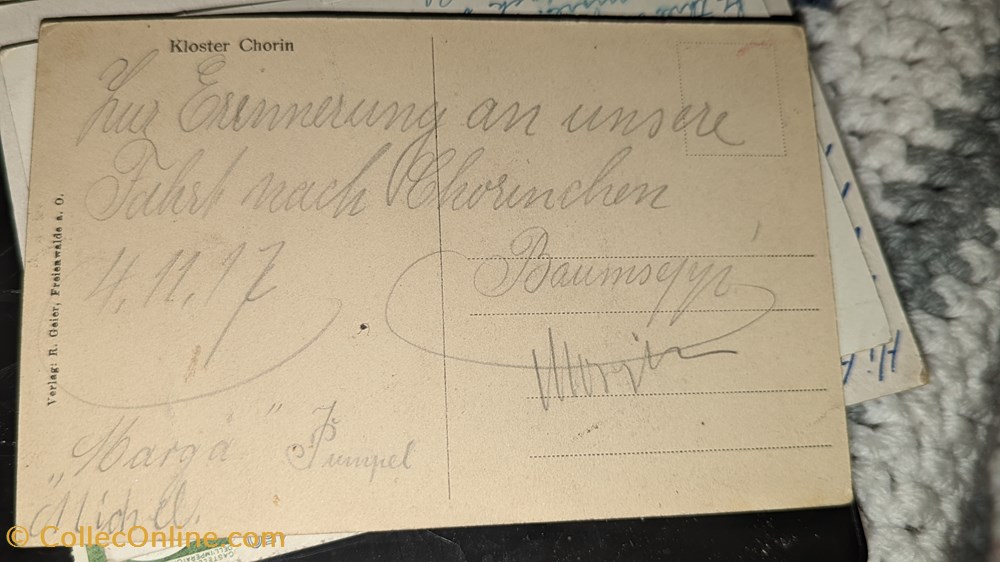 Kloster Chorin
Zur Erinnerung an unsere
Fahrt nach Chorinchen
4.11.17
Baumsepp
Verlag: R. Geier, Freienwalde a. O.
„Marga" Pumpel
Michel.
© CollecOnline.com